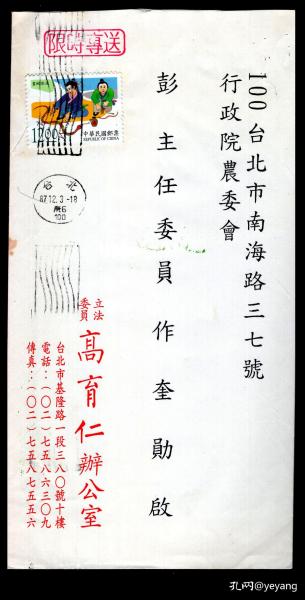 限時專送
1200
中華民國郵票
REPUBLIC OF CHINA
台北
87.12.3.-18
100
100台北市南海路三七號
行政院農委會
彭主任委員作奎勛啟
立法委員高育仁辦公室
台北市基隆路一段三八〇號十樓
電話：(〇二)七五八六三〇九
傳真：(〇二)七五八七五五六
孔网@yeyang